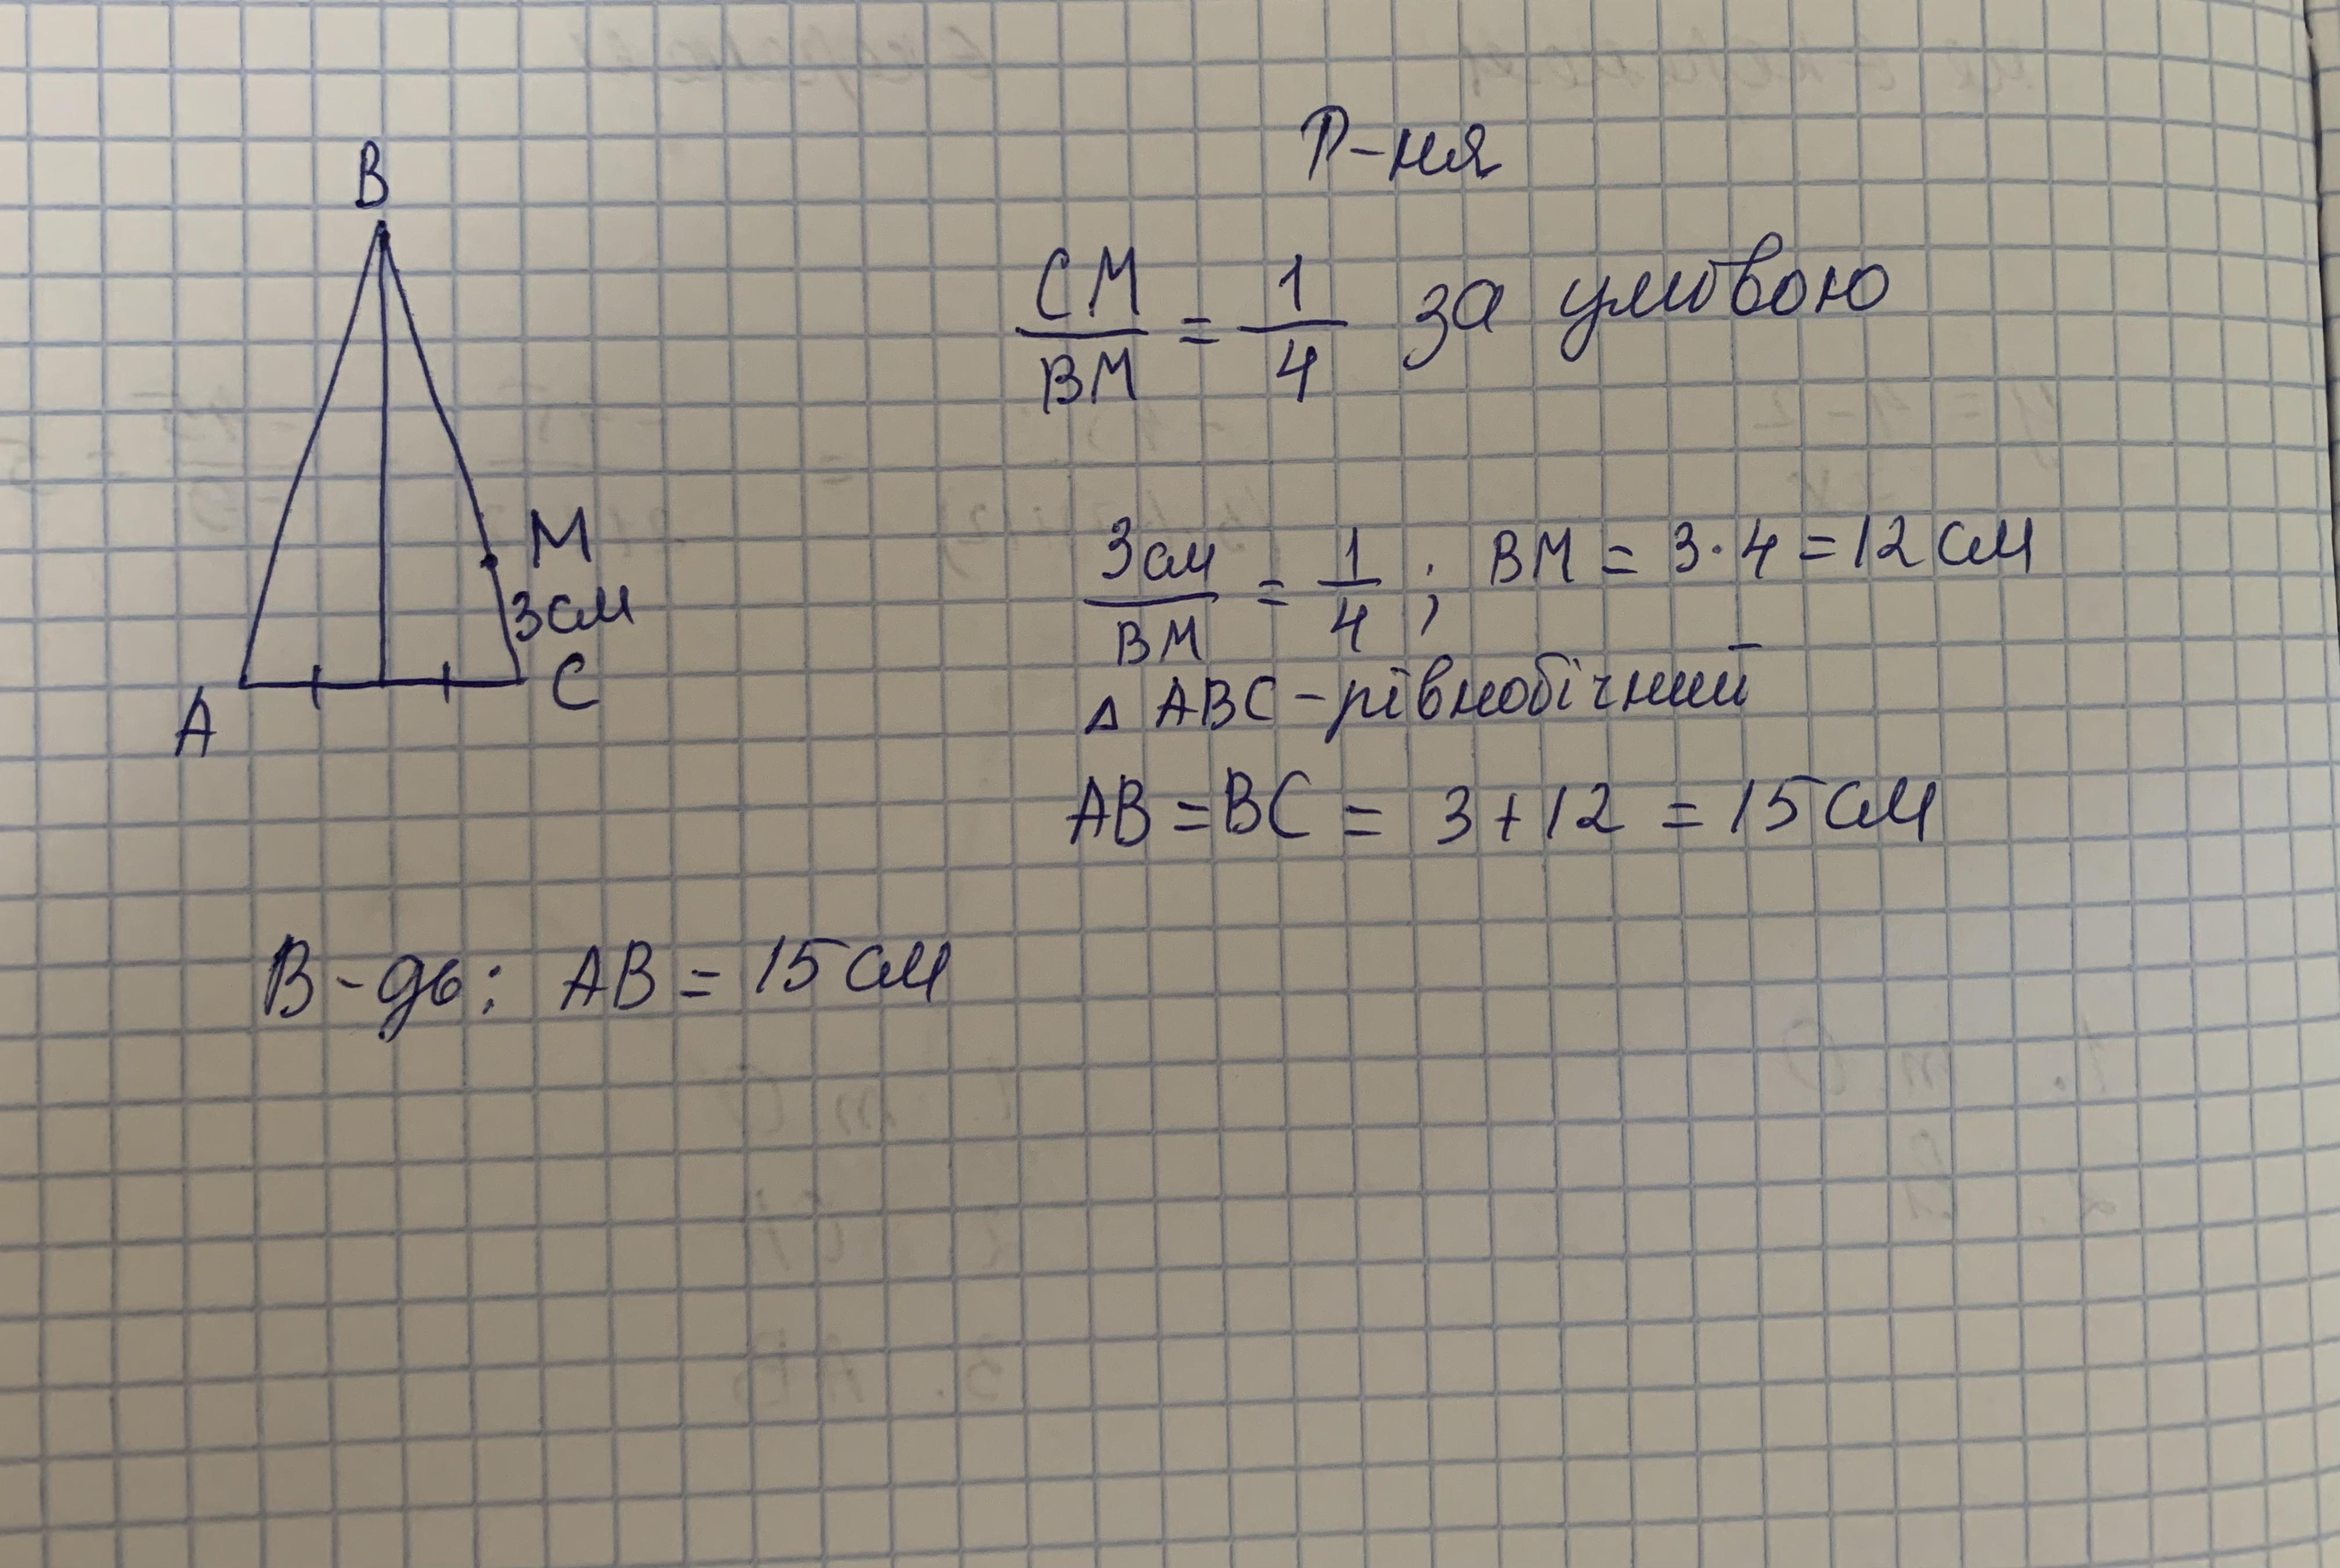 Р-ня
B
CM/BM = 1/4 за умовою
M
3см
3см/BM = 1/4 ; BM = 3·4 = 12 см
A
C
△ ABC - рівнобічний
AB = BC = 3 + 12 = 15 см
В-дь: AB = 15 см